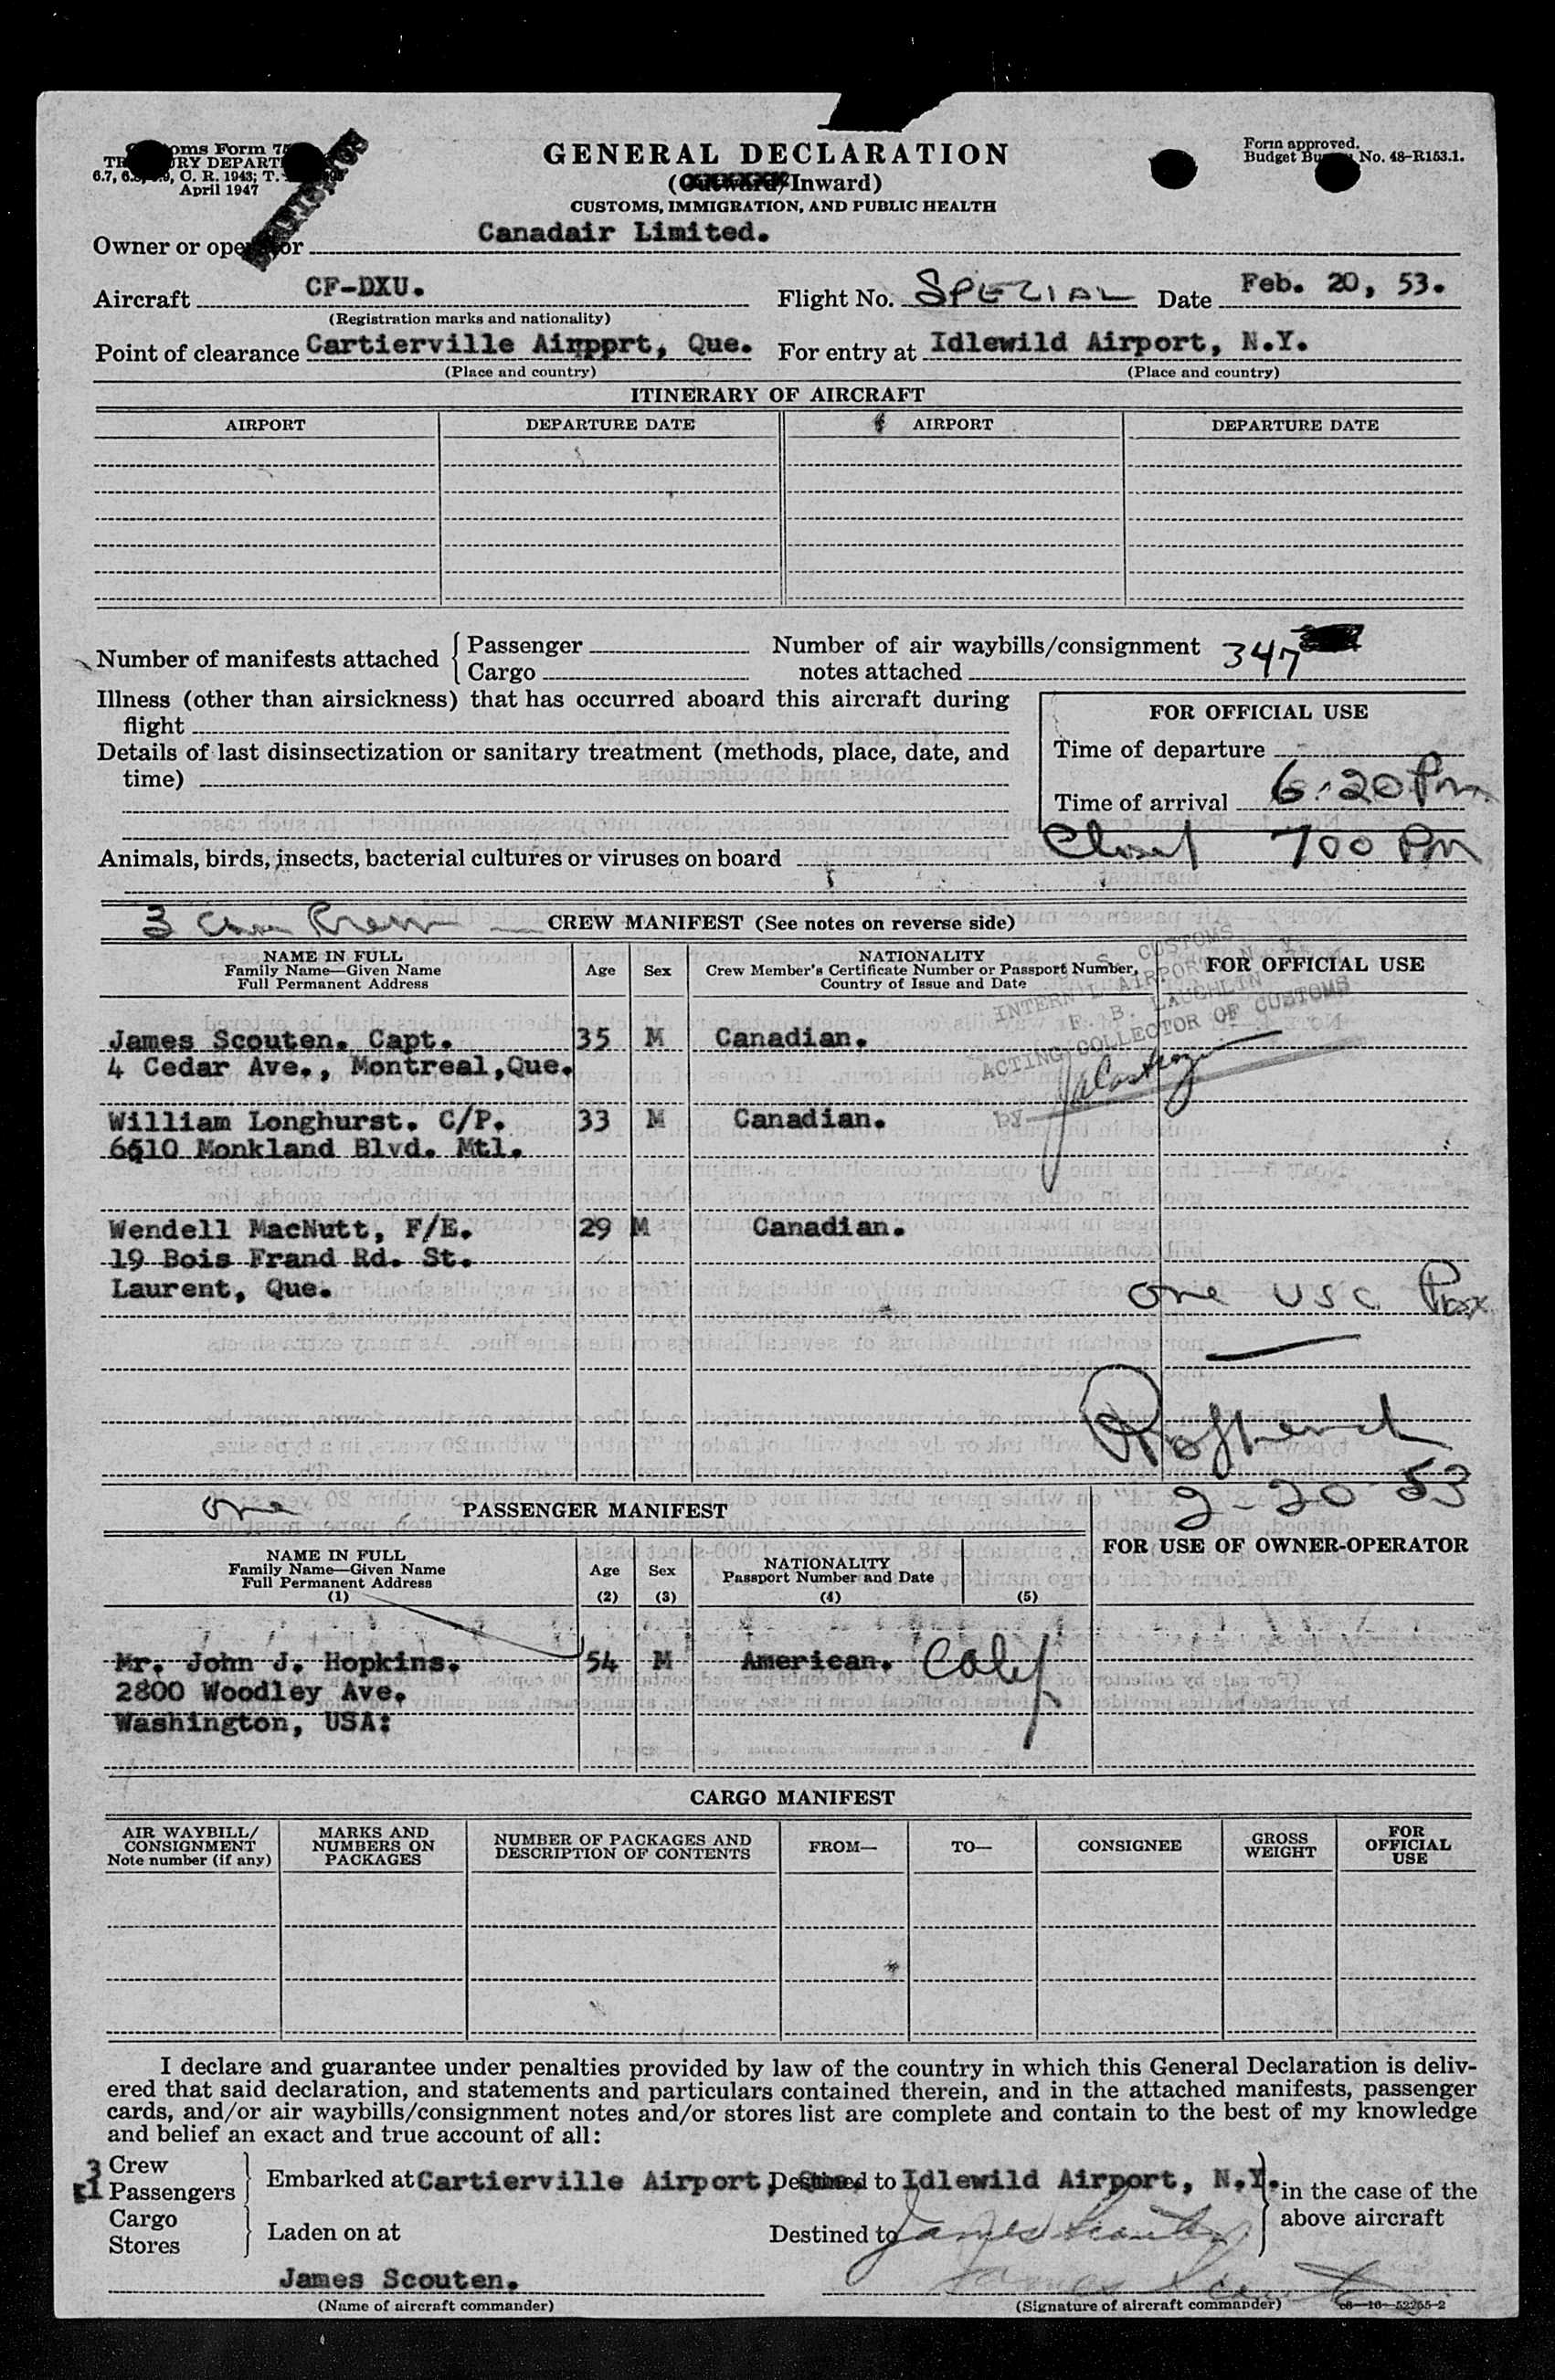 GENERAL DECLARATION
(Outward/Inward)
CUSTOMS, IMMIGRATION, AND PUBLIC HEALTH
April 1947
Form approved.
No. 48-R153.1.
Owner or operator Canadair Limited.
Aircraft CF-DXU. Flight No. SPECIAL Date Feb. 20, 53.
(Registration marks and nationality)
Point of clearance Cartierville Airpprt, Que. For entry at Idlewild Airport, N.Y.
(Place and country) (Place and country)
ITINERARY OF AIRCRAFT
AIRPORT DEPARTURE DATE AIRPORT DEPARTURE DATE
Number of manifests attached { Passenger Number of air waybills/consignment 347
Cargo notes attached
Illness (other than airsickness) that has occurred aboard this aircraft during
flight
FOR OFFICIAL USE
Details of last disinsectization or sanitary treatment (methods, place, date, and
time)
Time of departure
Time of arrival 6:20 Pm
Closed 700 Pm
Animals, birds, insects, bacterial cultures or viruses on board
3 Crew CREW MANIFEST (See notes on reverse side)
NAME IN FULL
Family Name—Given Name
Full Permanent Address
Age Sex
NATIONALITY
Crew Member's Certificate Number or Passport Number,
Country of Issue and Date
FOR OFFICIAL USE
S. CUSTOMS
INTERN'L AIRPORT N.Y.
F. B. LAUGHLIN
ACTING COLLECTOR OF CUSTOMS
by
James Scouten. Capt. 35 M Canadian.
4 Cedar Ave., Montreal,Que.
William Longhurst. C/P. 33 M Canadian.
6510 Monkland Blvd. Mtl.
Wendell MacNutt, F/E. 29 M Canadian.
19 Bois Frand Rd. St.
Laurent, Que.
one USC Pax
2-20-53
one PASSENGER MANIFEST
FOR USE OF OWNER-OPERATOR
NAME IN FULL
Family Name—Given Name
Full Permanent Address
(1)
Age
(2)
Sex
(3)
NATIONALITY
Passport Number and Date
(4) (5)
Mr. John J. Hopkins. 54 M American. Calif
2800 Woodley Ave.
Washington, USA:
CARGO MANIFEST
AIR WAYBILL/
CONSIGNMENT
Note number (if any)
MARKS AND
NUMBERS ON
PACKAGES
NUMBER OF PACKAGES AND
DESCRIPTION OF CONTENTS
FROM— TO— CONSIGNEE
GROSS
WEIGHT
FOR
OFFICIAL
USE
I declare and guarantee under penalties provided by law of the country in which this General Declaration is deliv-
ered that said declaration, and statements and particulars contained therein, and in the attached manifests, passenger
cards, and/or air waybills/consignment notes and/or stores list are complete and contain to the best of my knowledge
and belief an exact and true account of all:
3 Crew
1 Passengers
Embarked at Cartierville Airport, Que. Destined to Idlewild Airport, N.Y. in the case of the
above aircraft
Cargo
Stores
Laden on at Destined to James Scouten
James Scouten. James Scouten
(Name of aircraft commander) (Signature of aircraft commander) 16—52255-2